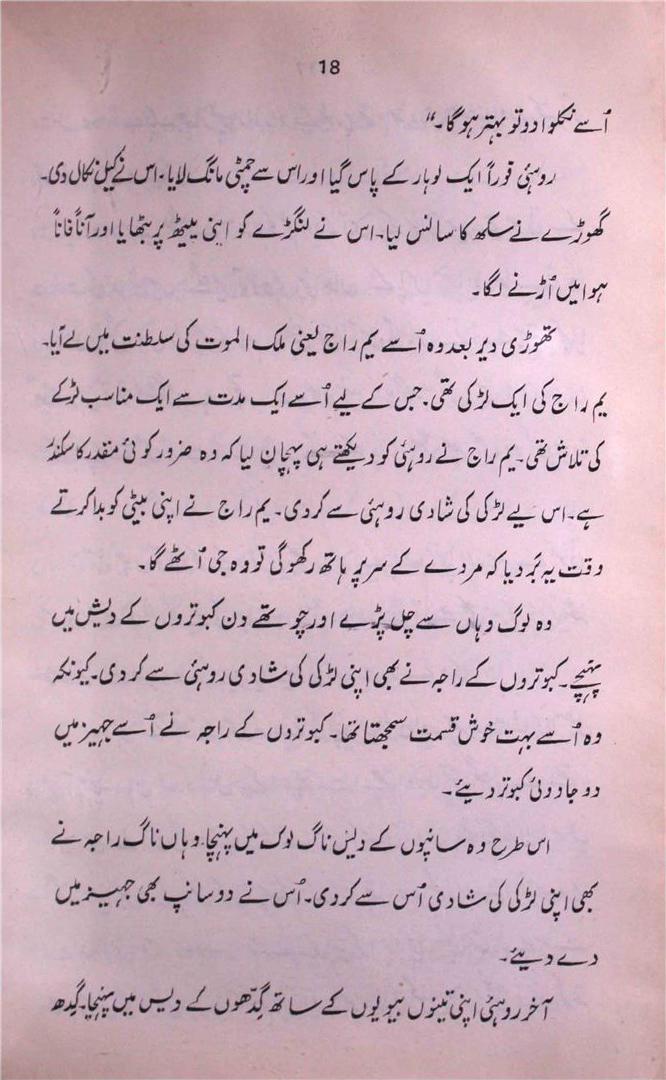 18
اُسے نکلوا دو تو بہتر ہو گا۔“
روہئی فوراً ایک لوہار کے پاس گیا اور اس سے چمٹی مانگ لایا۔ اس نے کیل نکال دی۔
گھوڑے نے سکھ کا سانس لیا۔ اس نے لنگڑے کو اپنی پیٹھ پر بٹھایا اور آناً فاناً
ہوا میں اُڑنے لگا۔
تھوڑی دیر بعد وہ اُسے یم راج یعنی ملک الموت کی سلطنت میں لے آیا۔
یم راج کی ایک لڑکی تھی۔ جس کے لیے اُسے ایک مدت سے ایک مناسب لڑکے
کی تلاش تھی۔ یم راج نے روہئی کو دیکھتے ہی پہچان لیا کہ وہ ضرور کوئی مقدر کا سکندر
ہے۔ اس لیے لڑکی کی شادی روہئی سے کر دی۔ یم راج نے اپنی بیٹی کو بدا کرتے
وقت یہ بَر دیا کہ مردے کے سر پر ہاتھ رکھو گی تو وہ جی اُٹھے گا۔
وہ لوگ وہاں سے چل پڑے اور چوتھے دن کبوتروں کے دیش میں
پہنچے۔ کبوتروں کے راجہ نے بھی اپنی لڑکی کی شادی روہئی سے کر دی۔ کیونکہ
وہ اُسے بہت خوش قسمت سمجھتا تھا۔ کبوتروں کے راجہ نے اُسے جہیز میں
دو جادوئی کبوتر دیئے۔
اس طرح وہ سانپوں کے دیس ناگ لوک میں پہنچا۔ وہاں ناگ راجہ نے
بھی اپنی لڑکی کی شادی اُس سے کر دی۔ اُس نے دو سانپ بھی جہیز میں
دے دیئے۔
آخر روہئی اپنی تینوں بیویوں کے ساتھ گِدّھوں کے دیس میں پہنچا۔ گِدھ